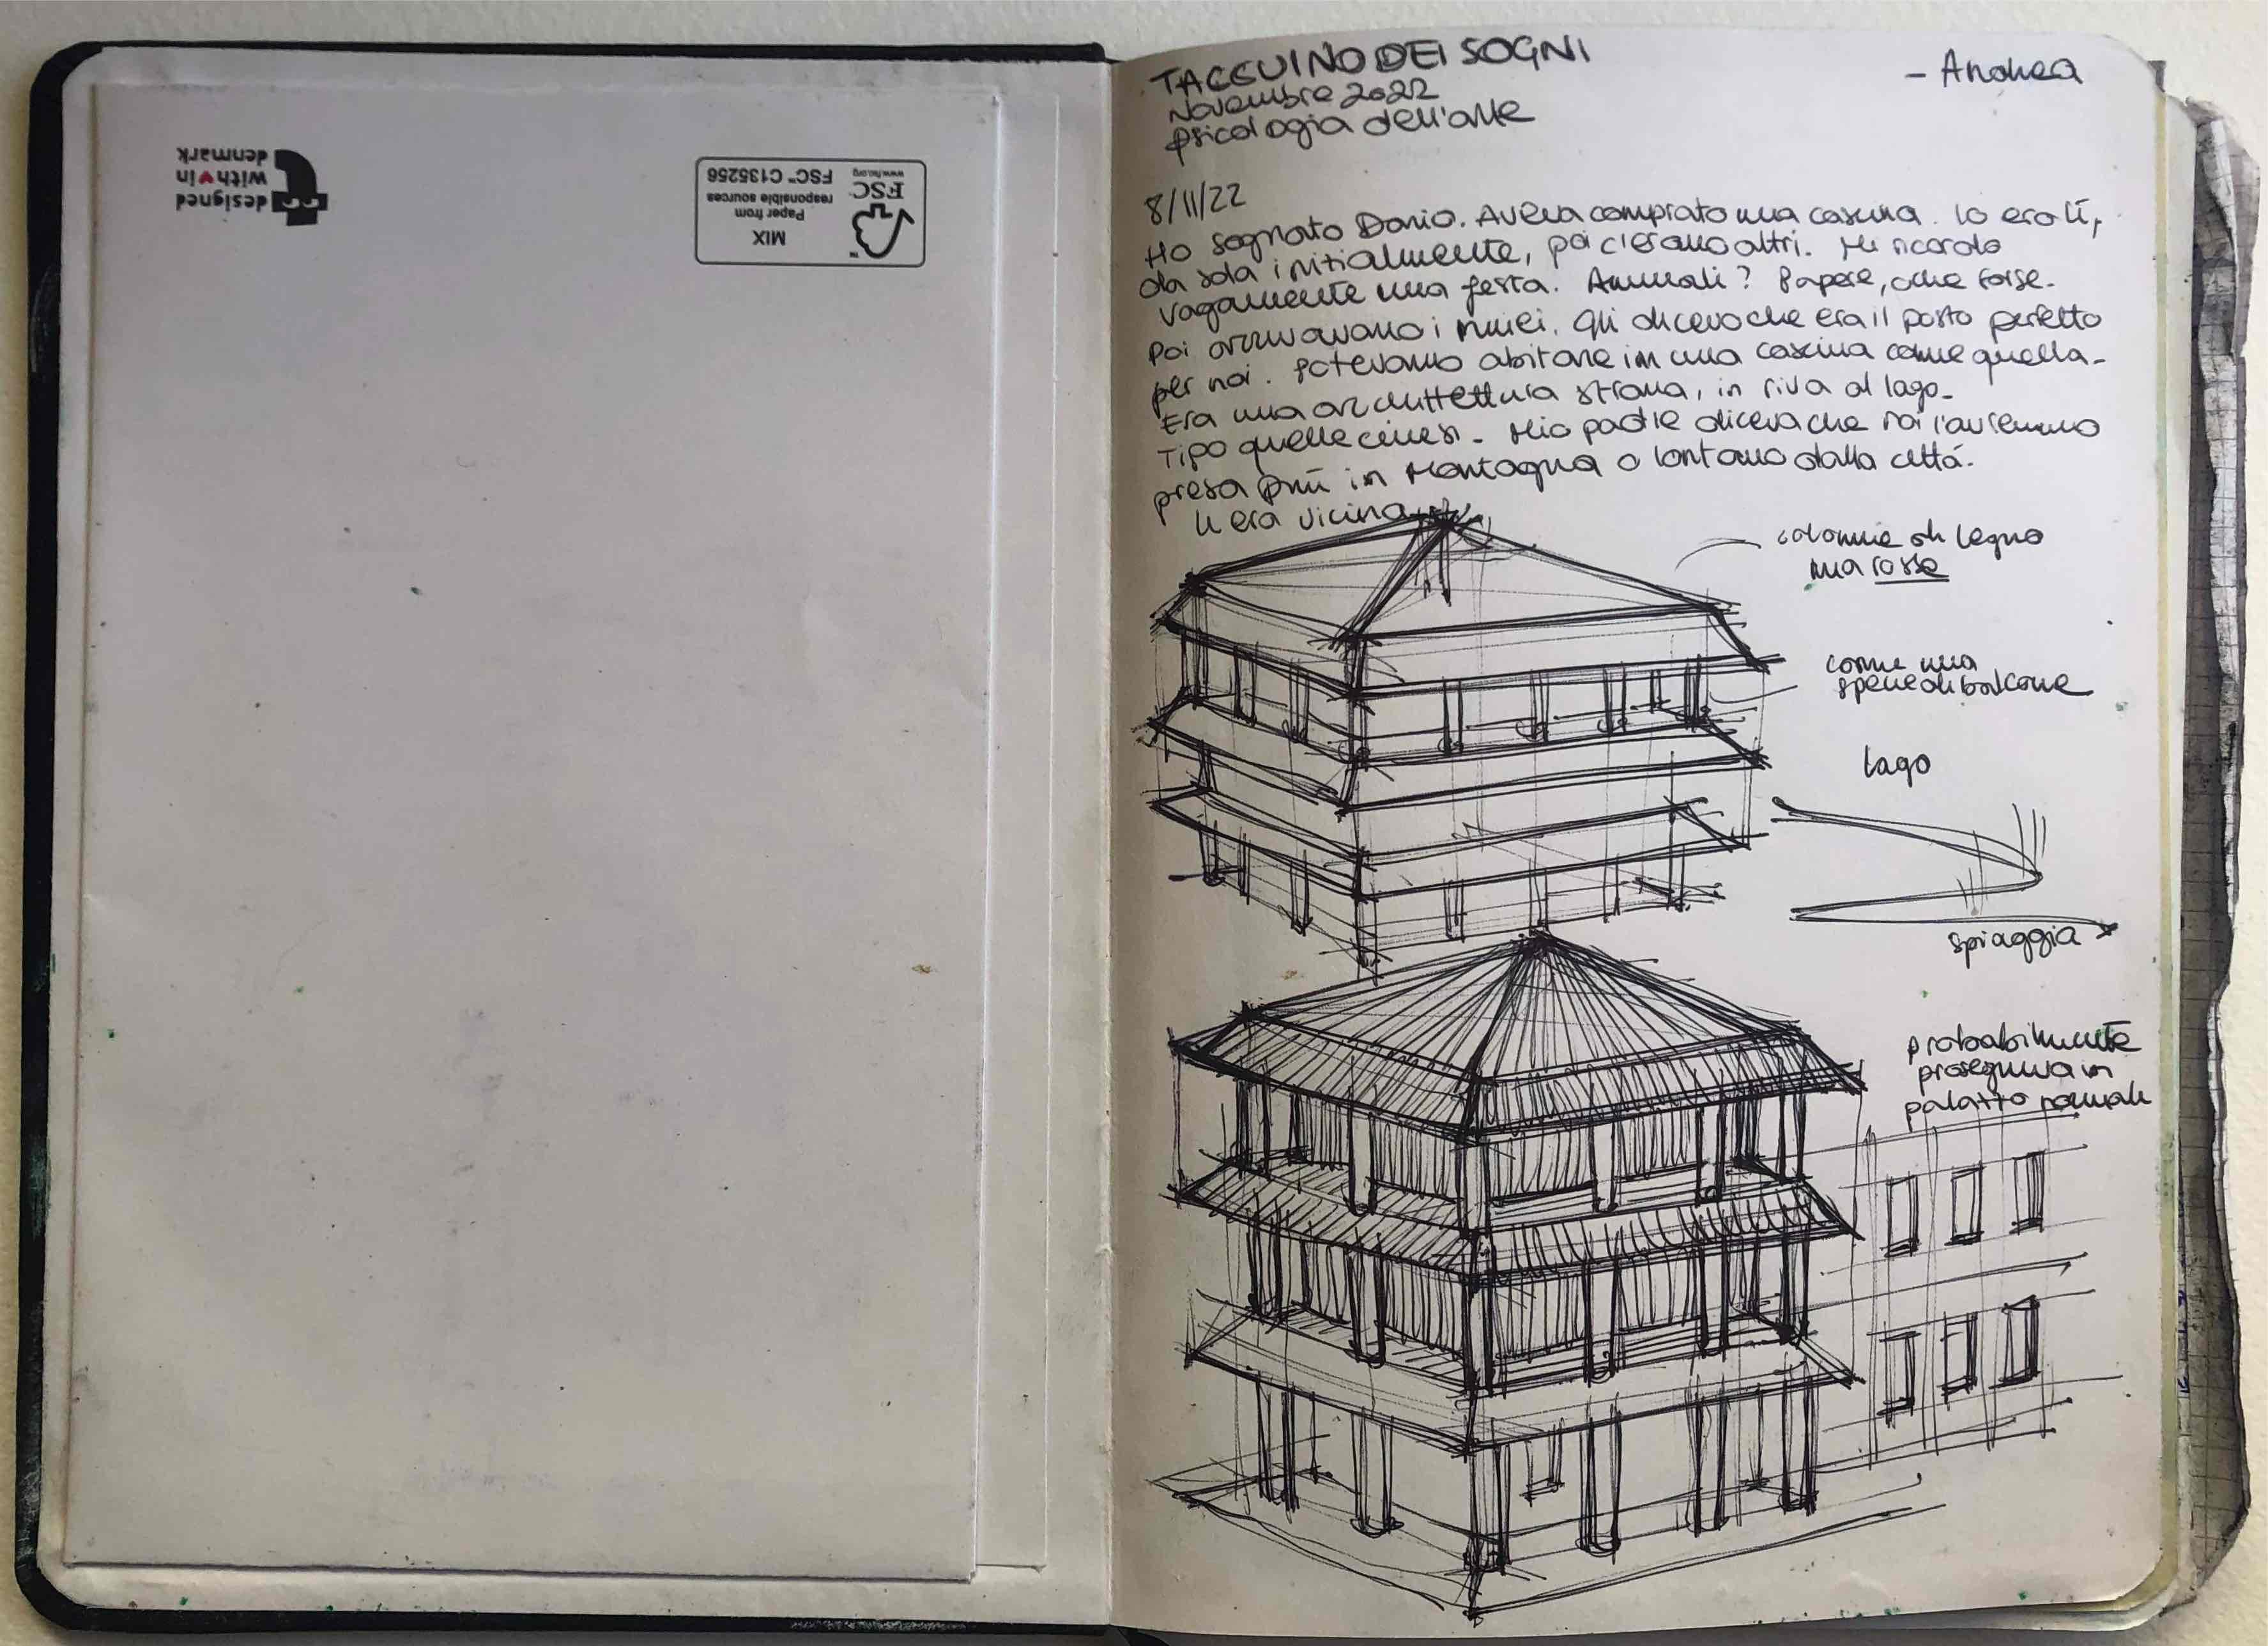 designed
with in
denmark
MIX
Paper from
responsible sources
FSC™ C135256
FSC
www.fsc.org
TACCUINO DEI SOGNI
- Andrea
Novembre 2022
psicologia dell'arte
8/11/22
Ho sognato Dario. Aveva comprato una cascina. Io ero lì,
da sola inizialmente, poi c'erano altri. Mi ricordo
vagamente una festa. Animali? Papere, oche forse.
Poi arrivavano i miei. Gli dicevo che era il posto perfetto
per noi. Potevamo abitare in una cascina come quella.
Era una architettura strana, in riva al lago.
Tipo quelle cinesi. Mio padre diceva che noi l'avremmo
presa più in montagna o lontano dalla città.
Lì era vicina
colonne di legno
ma rosse
come una
specie di balcone
lago
spiaggia
probabilmente
proseguiva in
palazzo normale